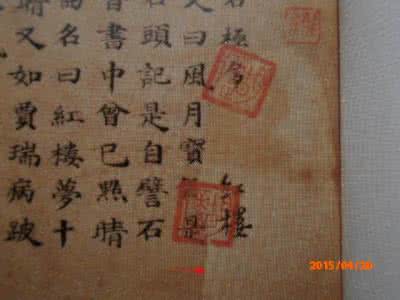 名極多 紅樓
又曰風月寶是
石頭記是自譬石
皆書中曾已點睛
曲名曰紅樓夢十
睛又如賈瑞病跛
2015/04/20